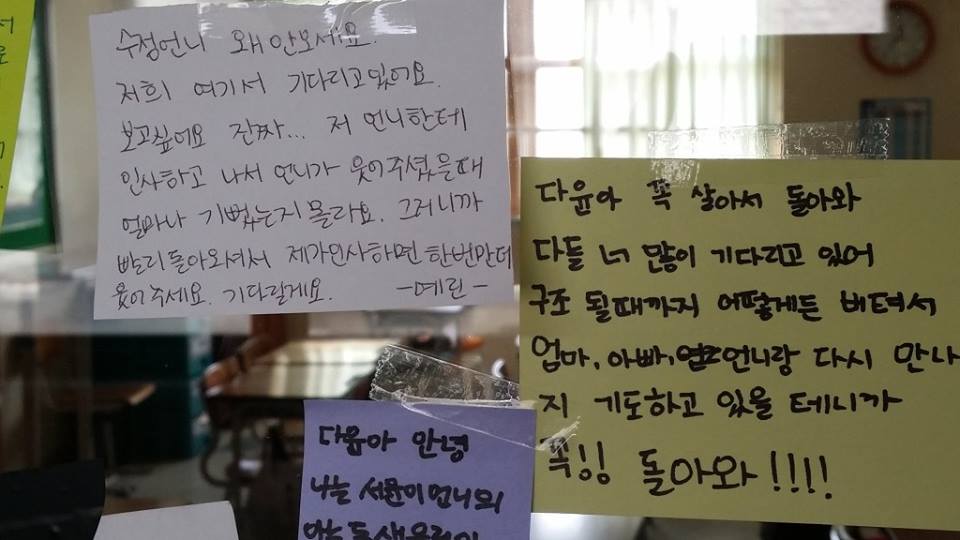 수정언니 왜 안오세요.
저희 여기서 기다리고있어요
보고싶어요 진짜... 저 언니한테
인사하고 나서 언니가 웃어주셨을때
얼마나 기뻤는지 몰라요. 그러니까
빨리돌아와서 제가인사하면 한번만더
웃어주세요. 기다릴게요. -예린-
다윤아 꼭 살아서 돌아와
다들 너 많이 기다리고 있어
구조 될때까지 어떻게든 버텨서
엄마, 아빠, 언니랑 다시 만나
지 기도하고 있을 테니까
꼭!! 돌아와!!!!
다윤아 안녕
나는 서윤이언니의
아는동생